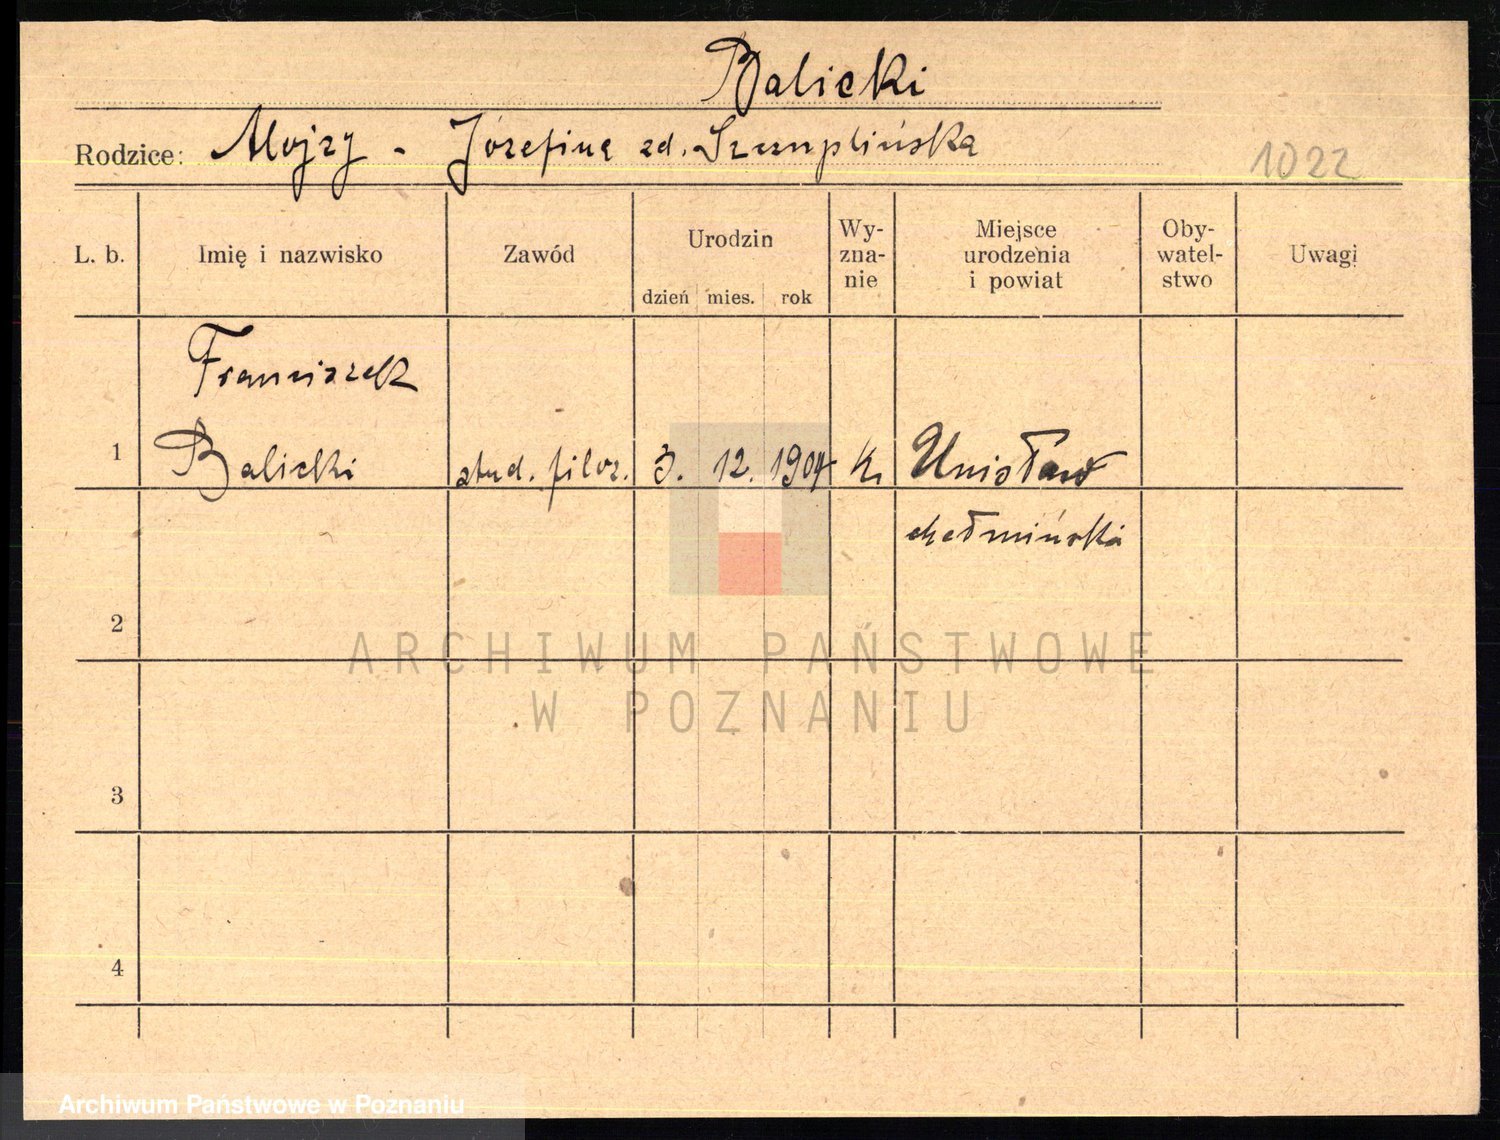 Balicki
Rodzice: Alojzy - Józefina zd. Szumplińska
1022
L. b. Imię i nazwisko Zawód Urodzin dzień mies. rok Wy-zna-nie Miejsce urodzenia i powiat Oby-watel-stwo Uwagi
Franciszek
1 Balicki stud. filoz. 3. 12. 1904 k. Unisław
chełmiński
2
ARCHIWUM PAŃSTWOWE
W POZNANIU
3
4
Archiwum Państwowe w Poznaniu